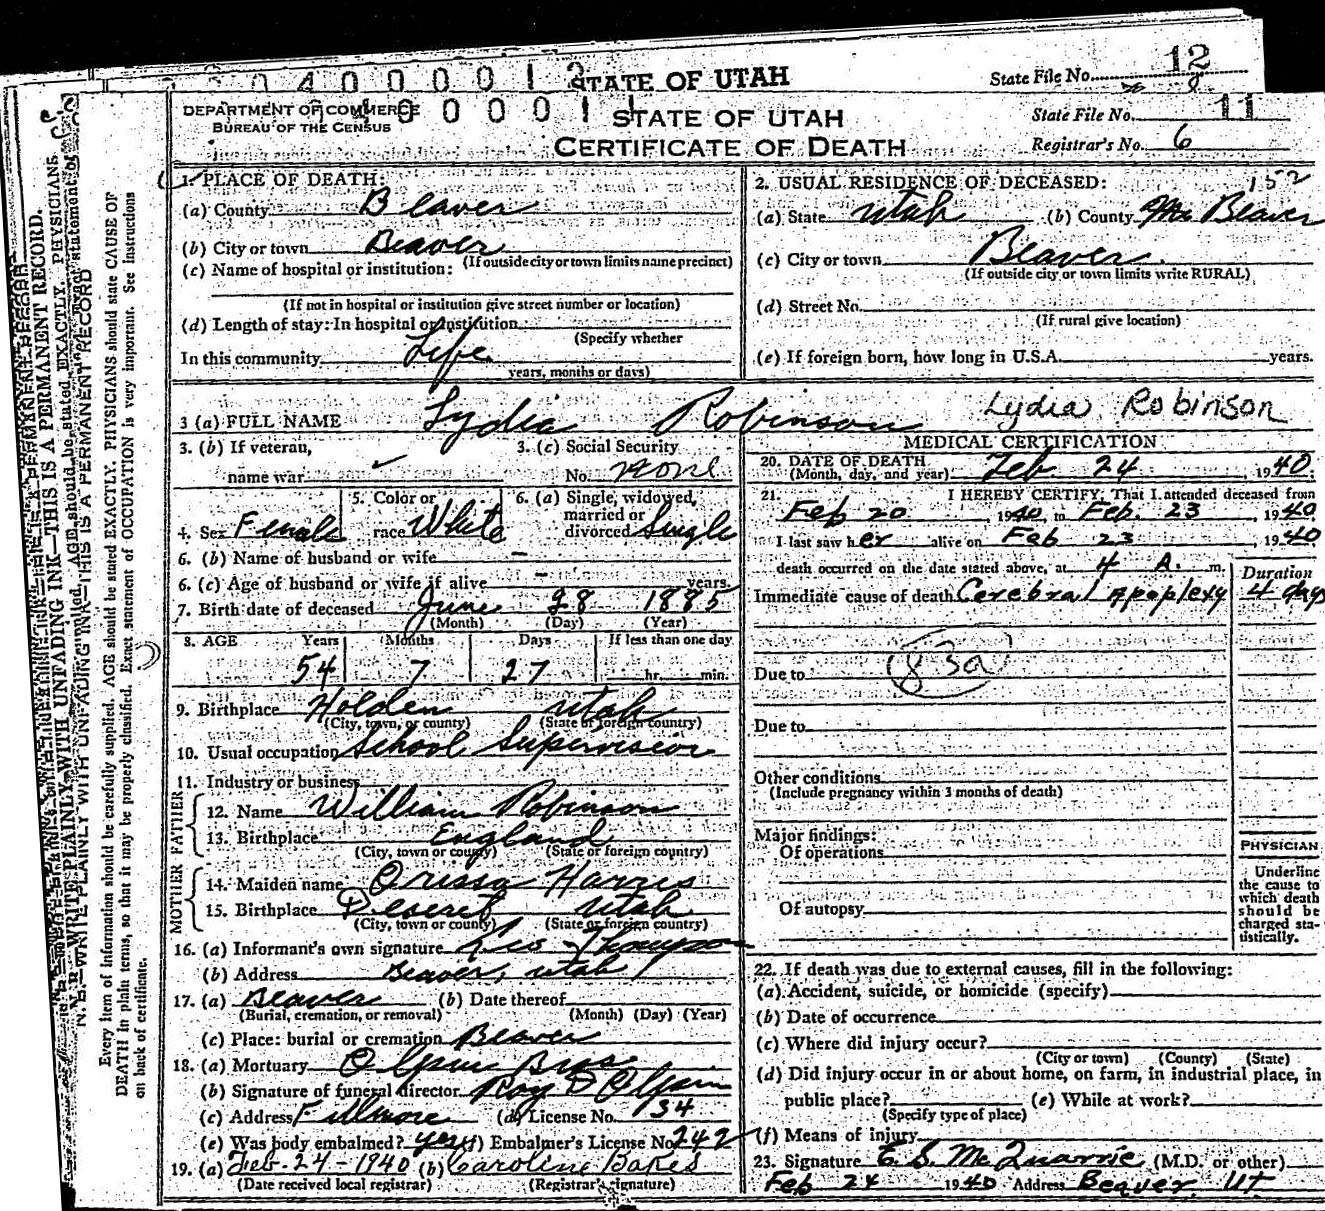 STATE OF UTAH
State File No. 12
DEPARTMENT OF COMMERCE
BUREAU OF THE CENSUS
STATE OF UTAH
State File No. 11
CERTIFICATE OF DEATH
Registrar's No. 6
1. PLACE OF DEATH:
(a) County Beaver
(b) City or town Beaver
(If outside city or town limits name precinct)
(c) Name of hospital or institution:
(If not in hospital or institution give street number or location)
(d) Length of stay: In hospital or institution
(Specify whether
In this community Life
years, months or days)
2. USUAL RESIDENCE OF DECEASED: 152
(a) State Utah (b) County Beaver
(c) City or town Beaver
(If outside city or town limits write RURAL)
(d) Street No.
(If rural give location)
(e) If foreign born, how long in U.S.A. years.
3 (a) FULL NAME Lydia Robinson Lydia Robinson
3. (b) If veteran,
name war
3. (c) Social Security
No. None
4. Sex Female
5. Color or
race White
6. (a) Single, widowed,
married or
divorced Single
6. (b) Name of husband or wife –
6. (c) Age of husband or wife if alive – years
7. Birth date of deceased June 28 1885
(Month) (Day) (Year)
8. AGE Years Months Days If less than one day
54 7 27 hr. min.
9. Birthplace Holden Utah
(City, town, or county) (State or foreign country)
10. Usual occupation School Supervisior
11. Industry or business
FATHER
12. Name William Robinson
13. Birthplace England
(City, town or county) (State or foreign country)
MOTHER
14. Maiden name Orissa Harris
15. Birthplace Deseret Utah
(City, town or county) (State or foreign country)
16. (a) Informant's own signature Thompson
(b) Address Beaver, Utah
17. (a) Beaver (b) Date thereof
(Burial, cremation, or removal) (Month) (Day) (Year)
(c) Place: burial or cremation Beaver
18. (a) Mortuary Olpin Bros
(b) Signature of funeral director Roy D Olpin
(c) Address Fillmore (d) License No. 34
(e) Was body embalmed? yes (f) Embalmer's License No. 242
19. (a) Feb-24-1940 (b) Caroline Bakes
(Date received local registrar) (Registrar's signature)
MEDICAL CERTIFICATION
20. DATE OF DEATH
(Month, day, and year) Feb 24, 1940.
21. I HEREBY CERTIFY: That I attended deceased from
Feb 20, 1940, to Feb. 23, 1940
I last saw her alive on Feb 23, 1940
death occurred on the date stated above, at 4 A. m.
Duration
Immediate cause of death Cerebral Apoplexy 4 days
Due to 83a
Due to
Other conditions
(Include pregnancy within 3 months of death)
Major findings:
Of operations
Of autopsy
PHYSICIAN
Underline
the cause to
which death
should be
charged sta-
tistically.
22. If death was due to external causes, fill in the following:
(a) Accident, suicide, or homicide (specify)
(b) Date of occurrence
(c) Where did injury occur?
(City or town) (County) (State)
(d) Did injury occur in or about home, on farm, in industrial place, in
public place? (e) While at work?
(Specify type of place)
(f) Means of injury
23. Signature E. S. McQuarrie (M.D. or other)
Feb 24 1940 Address Beaver, Ut
N. B. WRITE PLAINLY WITH UNFADING INK—THIS IS A PERMANENT RECORD
Every item of information should be carefully supplied. AGE should be stated EXACTLY. PHYSICIANS should state CAUSE OF
DEATH in plain terms, so that it may be properly classified. Exact statement of OCCUPATION is very important. See Instructions
on back of certificate.